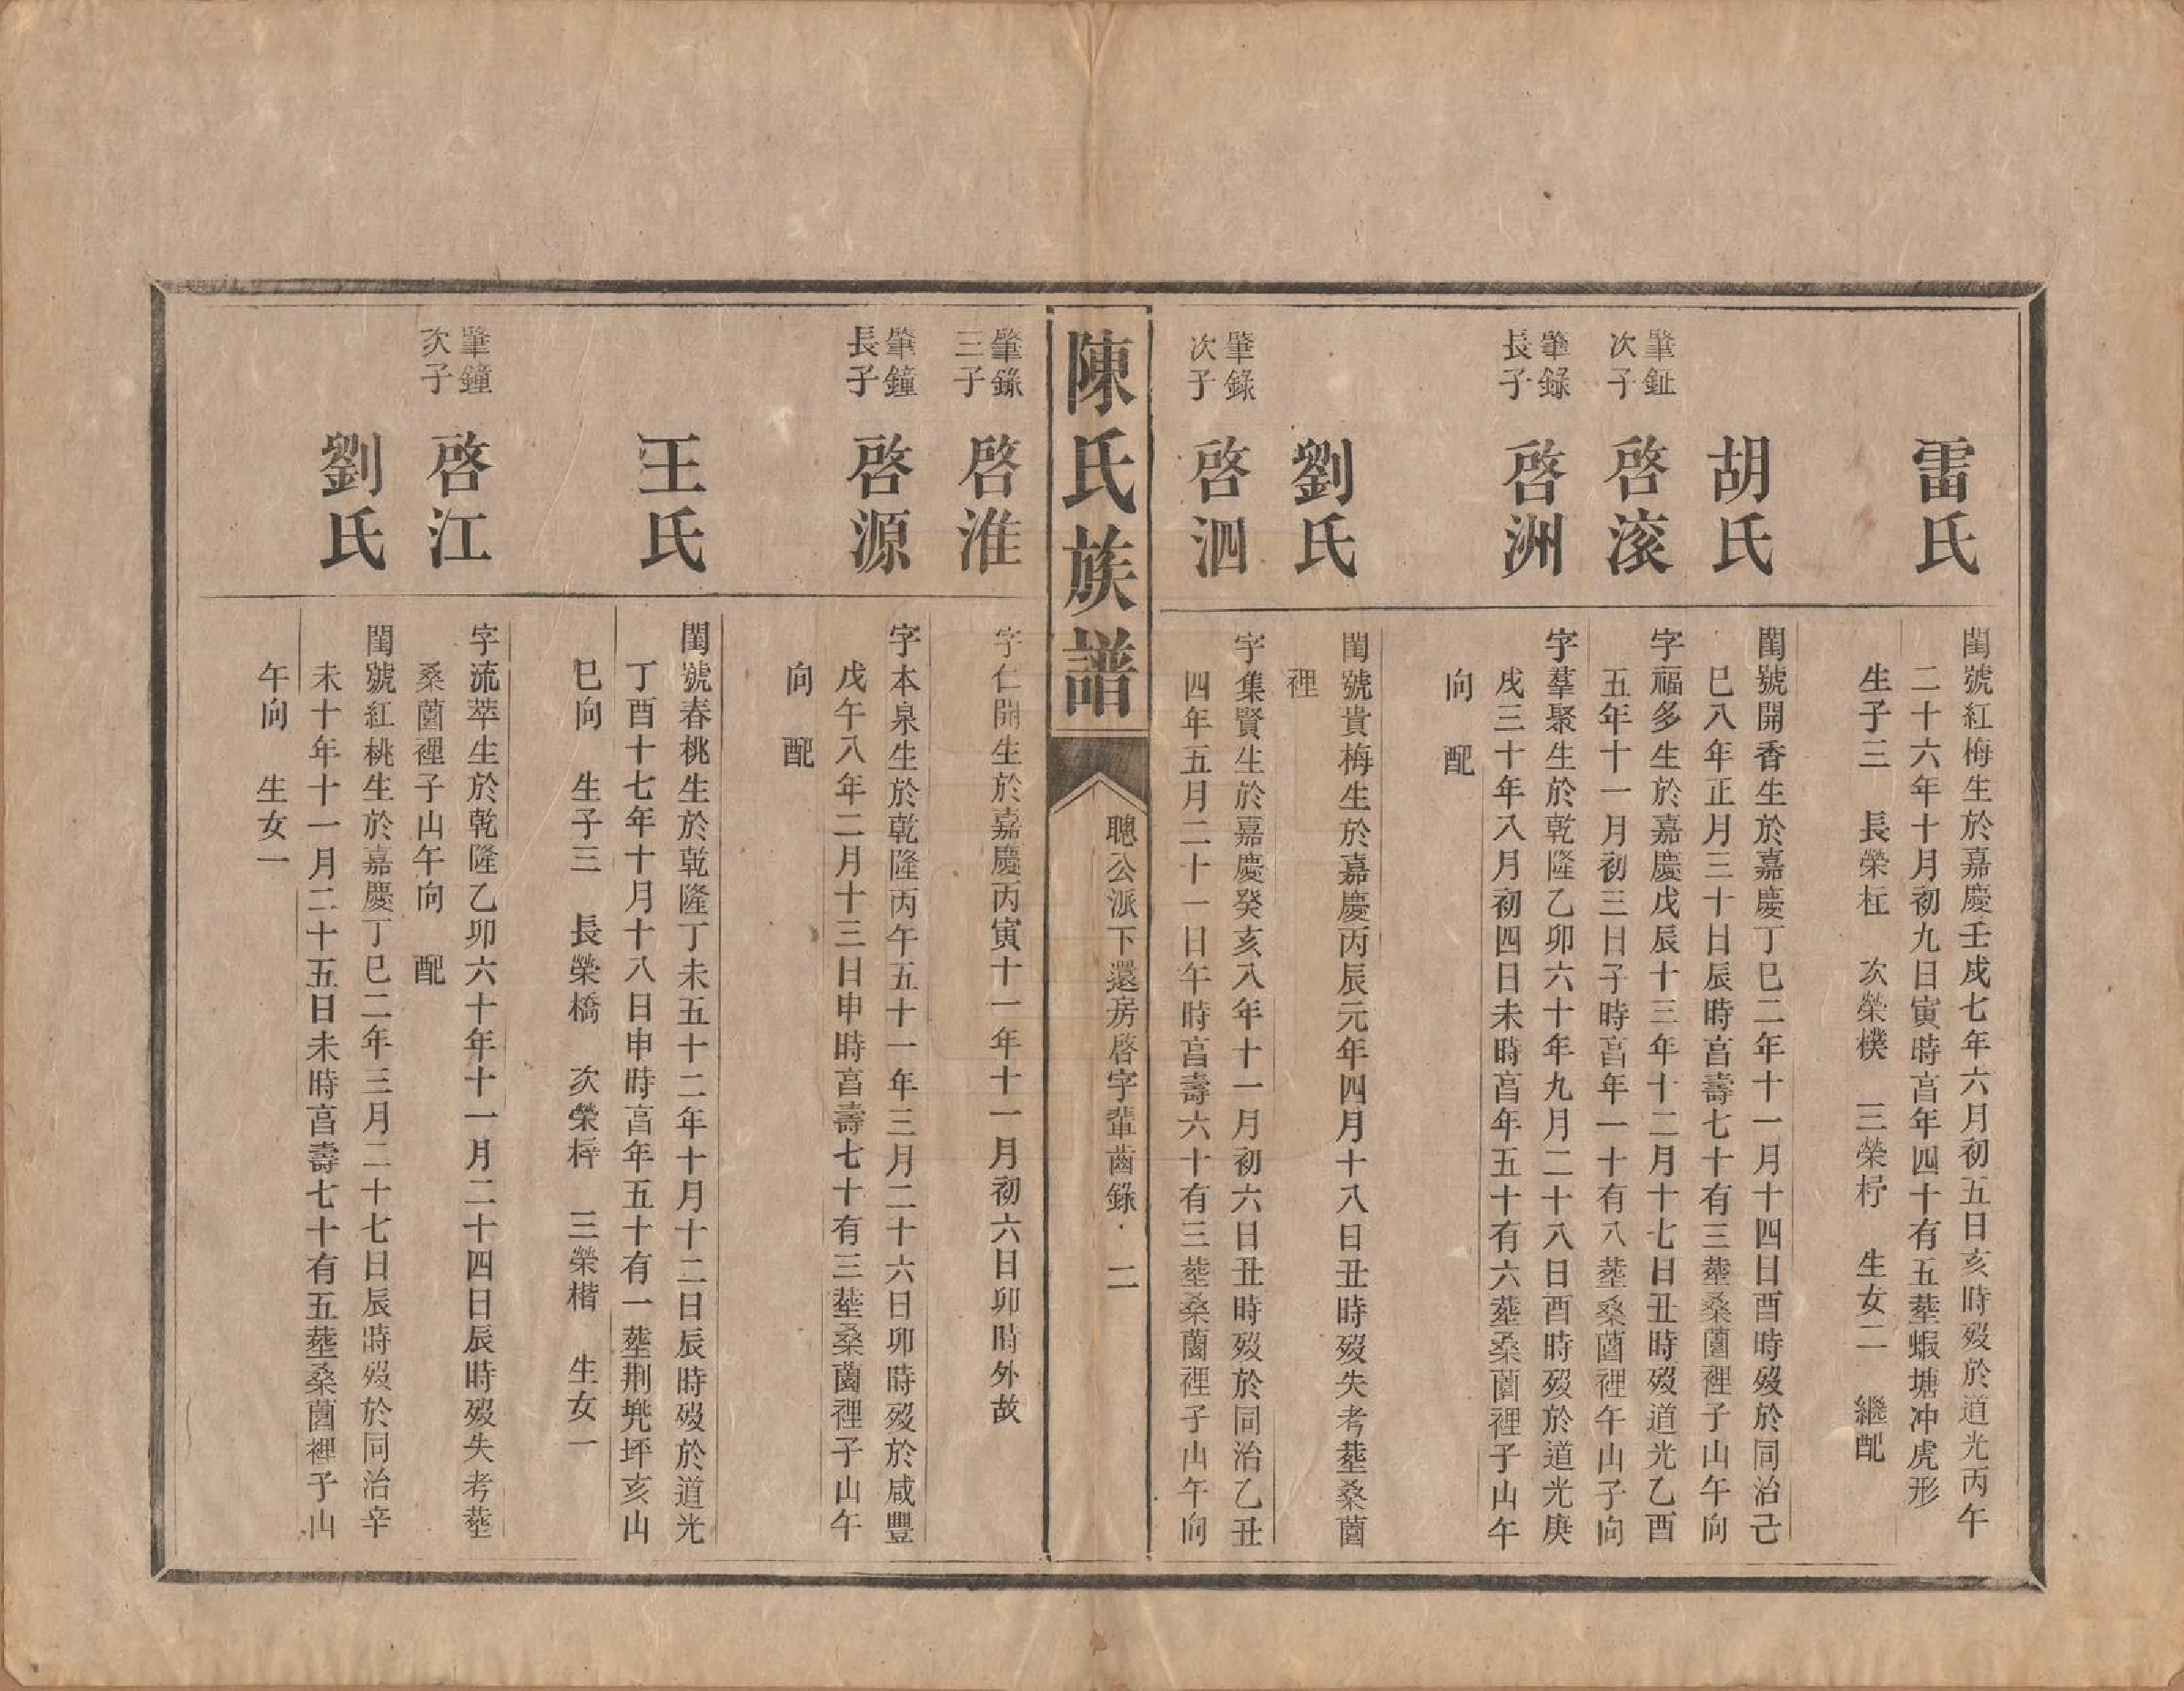 雷氏
閨號紅梅生於嘉慶壬戌七年六月初五日亥時歿於道光丙午
二十六年十月初九日寅時亯年四十有五塟蝦塘冲虎形
生子三　長榮枉　次榮樸　三榮杼　生女二　繼配
胡氏
閨號開香生於嘉慶丁巳二年十一月十四日酉時歿於同治己
巳八年正月三十日辰時亯壽七十有三塟桑薗裡子山午向
肇鉦
次子
啓滚
字福多生於嘉慶戊辰十三年十二月十七日丑時歿道光乙酉
五年十一月初三日子時亯年一十有八塟桑薗裡午山子向
肇錄
長子
啓洲
字羣聚生於乾隆乙卯六十年九月二十八日酉時歿於道光庚
戌三十年八月初四日未時亯年五十有六塟桑薗裡子山午
向　配
劉氏
閨號貴梅生於嘉慶丙辰元年四月十八日丑時歿失考塟桑薗
裡
肇錄
次子
啓泗
字集賢生於嘉慶癸亥八年十一月初六日丑時歿於同治乙丑
四年五月二十一日午時亯壽六十有三塟桑薗裡子山午向
陳氏族譜
聰公派下還房啓字輩齒錄　二
肇錄
三子
啓淮
字仁開生於嘉慶丙寅十一年十一月初六日卯時外故
肇鐘
長子
啓源
字本泉生於乾隆丙午五十一年三月二十六日卯時歿於咸豐
戊午八年二月十三日申時亯壽七十有三塟桑薗裡子山午
向　配
王氏
閨號春桃生於乾隆丁未五十二年十月十二日辰時歿於道光
丁酉十七年十月十八日申時亯年五十有一塟荆兠坪亥山
巳向　生子三　長榮橋　次榮梓　三榮楷　生女一
肇鐘
次子
啓江
字流萃生於乾隆乙卯六十年十一月二十四日辰時歿失考塟
桑薗裡子山午向　配
劉氏
閨號紅桃生於嘉慶丁巳二年三月二十七日辰時歿於同治辛
未十年十一月二十五日未時亯壽七十有五塟桑薗裡子山
午向　生女一